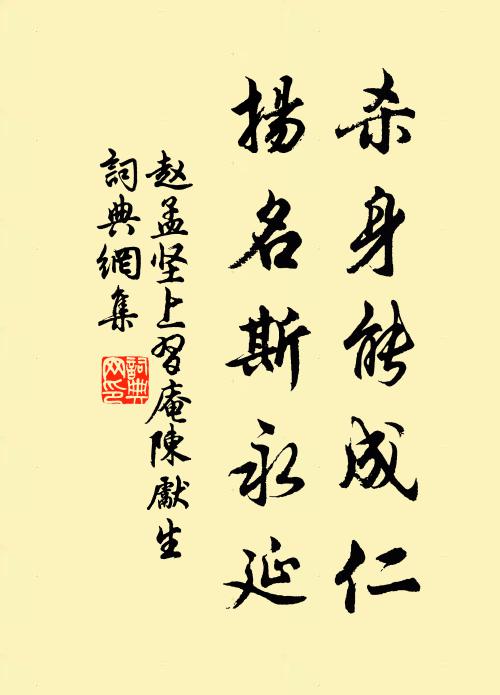 杀身能成仁
揚名斯永延
赵孟坚上習庵陳獻生
詞典網集
詞典网印